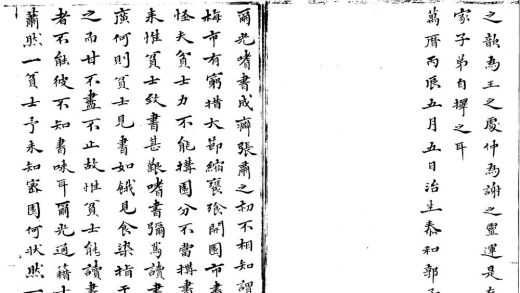 之歆為王之處仲為謝之靈運是
家子弟自擇之耳
萬曆丙辰五月五日治生泰和郭
爾光嗜書成癖張肅之初不相知謂
梅市有窮措大節縮饔飧開園市書
怪夫貧士力不能搆園分不當搆書
來惟貧士致書甚艱嗜書彌篤讀書
廣何則貧士見書如餓見食染指于
之而甘不盡不止故惟貧士能讀書
者不能彼不知書味耳爾光通籍
蕭然一貧士予未知密園何狀然一